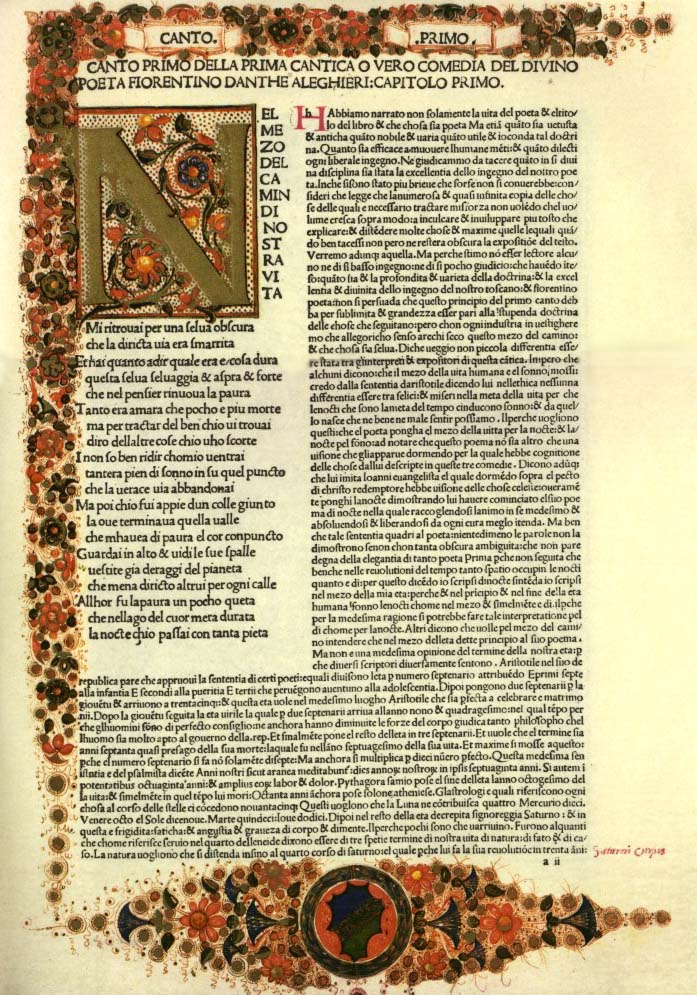 CANTO. .PRIMO.
CANTO PRIMO DELLA PRIMA CANTICA O VERO COMEDIA DEL DIVINO
POETA FIORENTINO DANTHE ALEGHIERI: CAPITOLO PRIMO.
N
EL
MEZO
DEL
CA
MIN
DI
NO
ST
RA
VI
TA
Mi ritrouai per una selua obscura
che la diricta uia era smarrita
Et hai quanto adir quale era e cosa dura
questa selua seluaggia & aspra & forte
che nel pensier rinuoua la paura
Tanto era amara che pocho e piu morte
ma per tractar del ben chio ui trouai
diro dellaltre cose chio uho scorte
I non so ben ridir chomio uentrai
tantera pien di sonno in su quel puncto
che la uerace uia abbandonai
Ma poi chio fui appie dun colle giunto
la oue terminaua quella ualle
che mhauea di paura el cor conpuncto
Guardai in alto & uidi le sue spalle
uestite gia deraggi del pianeta
che mena diricto altrui per ogni calle
Allhor fu lapaura un pocho queta
che nellago del cuor mera durata
la nocte chio passai con tanta pieta
HAbbiamo narrato non solamente la uita del poeta & eltito
lo del libro & che chosa sia poeta Ma etiã quãto sia uetusta
& anticha quãto nobile & uaria quãto utile & ioconda tal doctri
na. Quanto sia efficace a muouere lhumane mẽti: & quãto dilecti
ogni liberale ingegno. Ne giudicammo da tacere quãto in si diui
na disciplina sia stata la excellentia dello ingegno del nostro poe
ta. Inche sisono stato piu brieue che forse non si conuerebbe: con
sideri che legge che lanumerosa & quasi infinita copia delle cho
se delle quali e necessario tractare misforza non uolẽdo chel uo
lume cresca sopra modo: a inculcare & inuiluppare piu tosto che
explicare: & distẽdere molte chose & maxime quelle lequali quã
do ben tacessi non pero ne restera obscura la expositiõe del testo.
Verremo adunq aquella. Ma perche stimo nõ esser lectore alcu
no ne di si basso ingegno: ne di si pocho giudicio: che hauẽdo ite
so: quãto sia & la profondita & uarieta della doctrina: & la excel
lentia & diuinita dello ingegno del nostro toscano: & fiorentino
poeta: non si persuada che questo principio del primo canto deb
ba per sublimita & grandeza esser pari alla stupenda doctrina
delle chose che seguitano: pero chon ogni industria in uestighere
mo che allegoricho senso arechi seco questo mezo del camino:
& che chosa sia selua. Diche ueggio non piccola differentia esse
re stata tra glinterpreti & expositori di questa cãtica. Impero che
alchuni dicono: che il mezo della uita humana e el sonno, mossi:
credo dalla sententia daristotile dicendo lui nellethica nessuna
differentia essere tra felici: & miseri nella meta della uita per che
lenocti che sono lameta del tempo cinducono sonno: & da quel
lo nasce che ne bene ne male sentir possiamo. Ilperche uogliono
questi: che el poeta pongha el mezo della uita per la nocte: & la
nocte pel sõno: ad notare che questo poema nõ sia altro che una
uisione che gliapparue dormendo per la quale hebbe cognitione
delle chose dallui descripte in queste tre comedie. Dicono adũq
che lui imita Ioanni euangelista el quale dormẽdo sopra el pecto
di christo redemptore hebbe uisione delle chose
te ponghi lanocte dimostrando lui hauere cominciato elsuo poe
ma di nocte nella quale raccogliendosi lanimo in se medesimo &
absoluendosi & liberandosi da ogni cura meglo itenda. Ma ben
che tale sententia quadri al poeta: nientedimeno le parole non la
dimostrono senon chon tanta obscura ambiguita: che non pare
degna della elegantia di tanto poeta Prima pche non seguita che
benche nelle reuolutioni del tempo tanto spatio occupin le nocti
quanto e di: per questo dicẽdo io scripsi di nocte sintẽda io scripsi
nel mezo della mia eta: perche & nel pricipio & nel fine della eta
humana sonno lenocti chome nel mezo & similmẽte e di. Ilpche
per la medesima ragione si potrebbe fare tale interpretatione pel
di chome per lanocte. Altri dicono che uolle pel mezo del cami
no intendere che nel mezo delleta dette principio al suo poema.
Ma non e una medesima opinione del termine della nostra eta: p
che diuersi scriptori diuersamente sentono. Aristotile nel suo de
republica pare che appruoui la sententia di certi poeti: equali diuisono leta p numero septenario attribuẽdo Eprimi septe
alla infantia E secondi alla pueritia E tertii che peruẽgono auentuno alla adolescentia. Dipoi pongono due septenarii p la
giouẽtu & arriuono a trentacinq: & questa eta uole nel medesimo luogho Aristotile che sia pfecta a celebrare e matrimo
nii. Dopo la giouẽtu seguita la eta uirile la quale p due septenarii arriua allanno nono & quadragesimo: nel qual tẽpo per
che glhuomini sõno di perfecto consiglio: ne anchora hanno diminuite le forze del corpo giudica tanto philosopho chel
lhuomo sia molto apto al gouerno della.rep. Et finalmẽte pone el resto delleta in tre septenarii. Et uuole che el termine sia
anni septanta quasi presago della sua morte: laquale fu nellãno septuagesimo della sua uita. Et maxime si mosse aquesto:
pche el numero septenario si fa nõ solamẽte disepte: Ma anchora si multiplica p dieci nũero pfecto. Questa medesima sen
istntia e del psalmista dicẽte Anni nostri sicut aranea meditabunt: dies annoꝝ nostroꝝ in ipsis septuaginta anni. Si autem i
potentatibus octuaginta anni: & amplius eoꝝ labor & dolor. Pythagora samio pose el fine delleta lanno octogesimo del
la uita: & similmẽte in quel tẽpo lui mori: Octanta anni ãchora pose solone atheniese. Glastrologi e quali riferiscono ogni
chosa al corso delle stelle ci cõcedono nouantacinq: Questi uogliono che la Luna ne cõtribuisca quattro Mercurio dieci.
Venere octo el Sole dicenoue. Marte quindeci: Ioue dodici. Dipoi nel resto della eta decrepita signoreggia Saturno: & in
questa e frigidita: saticha: & angustia & graueza di corpo & dimente. Ilperche pochi sono che uarriuino. Furono alquanti
che chome riferisce seruio nel quarto delleneide dixono essere di tre spetie termine di nostra uita di natura: di fato & di ca
so. La natura uogliono che si distenda insino al quarto corso di saturno: el quale pche lui fa la sua reuolutiõe in trenta ãni:
a ii
Saturni Corpus